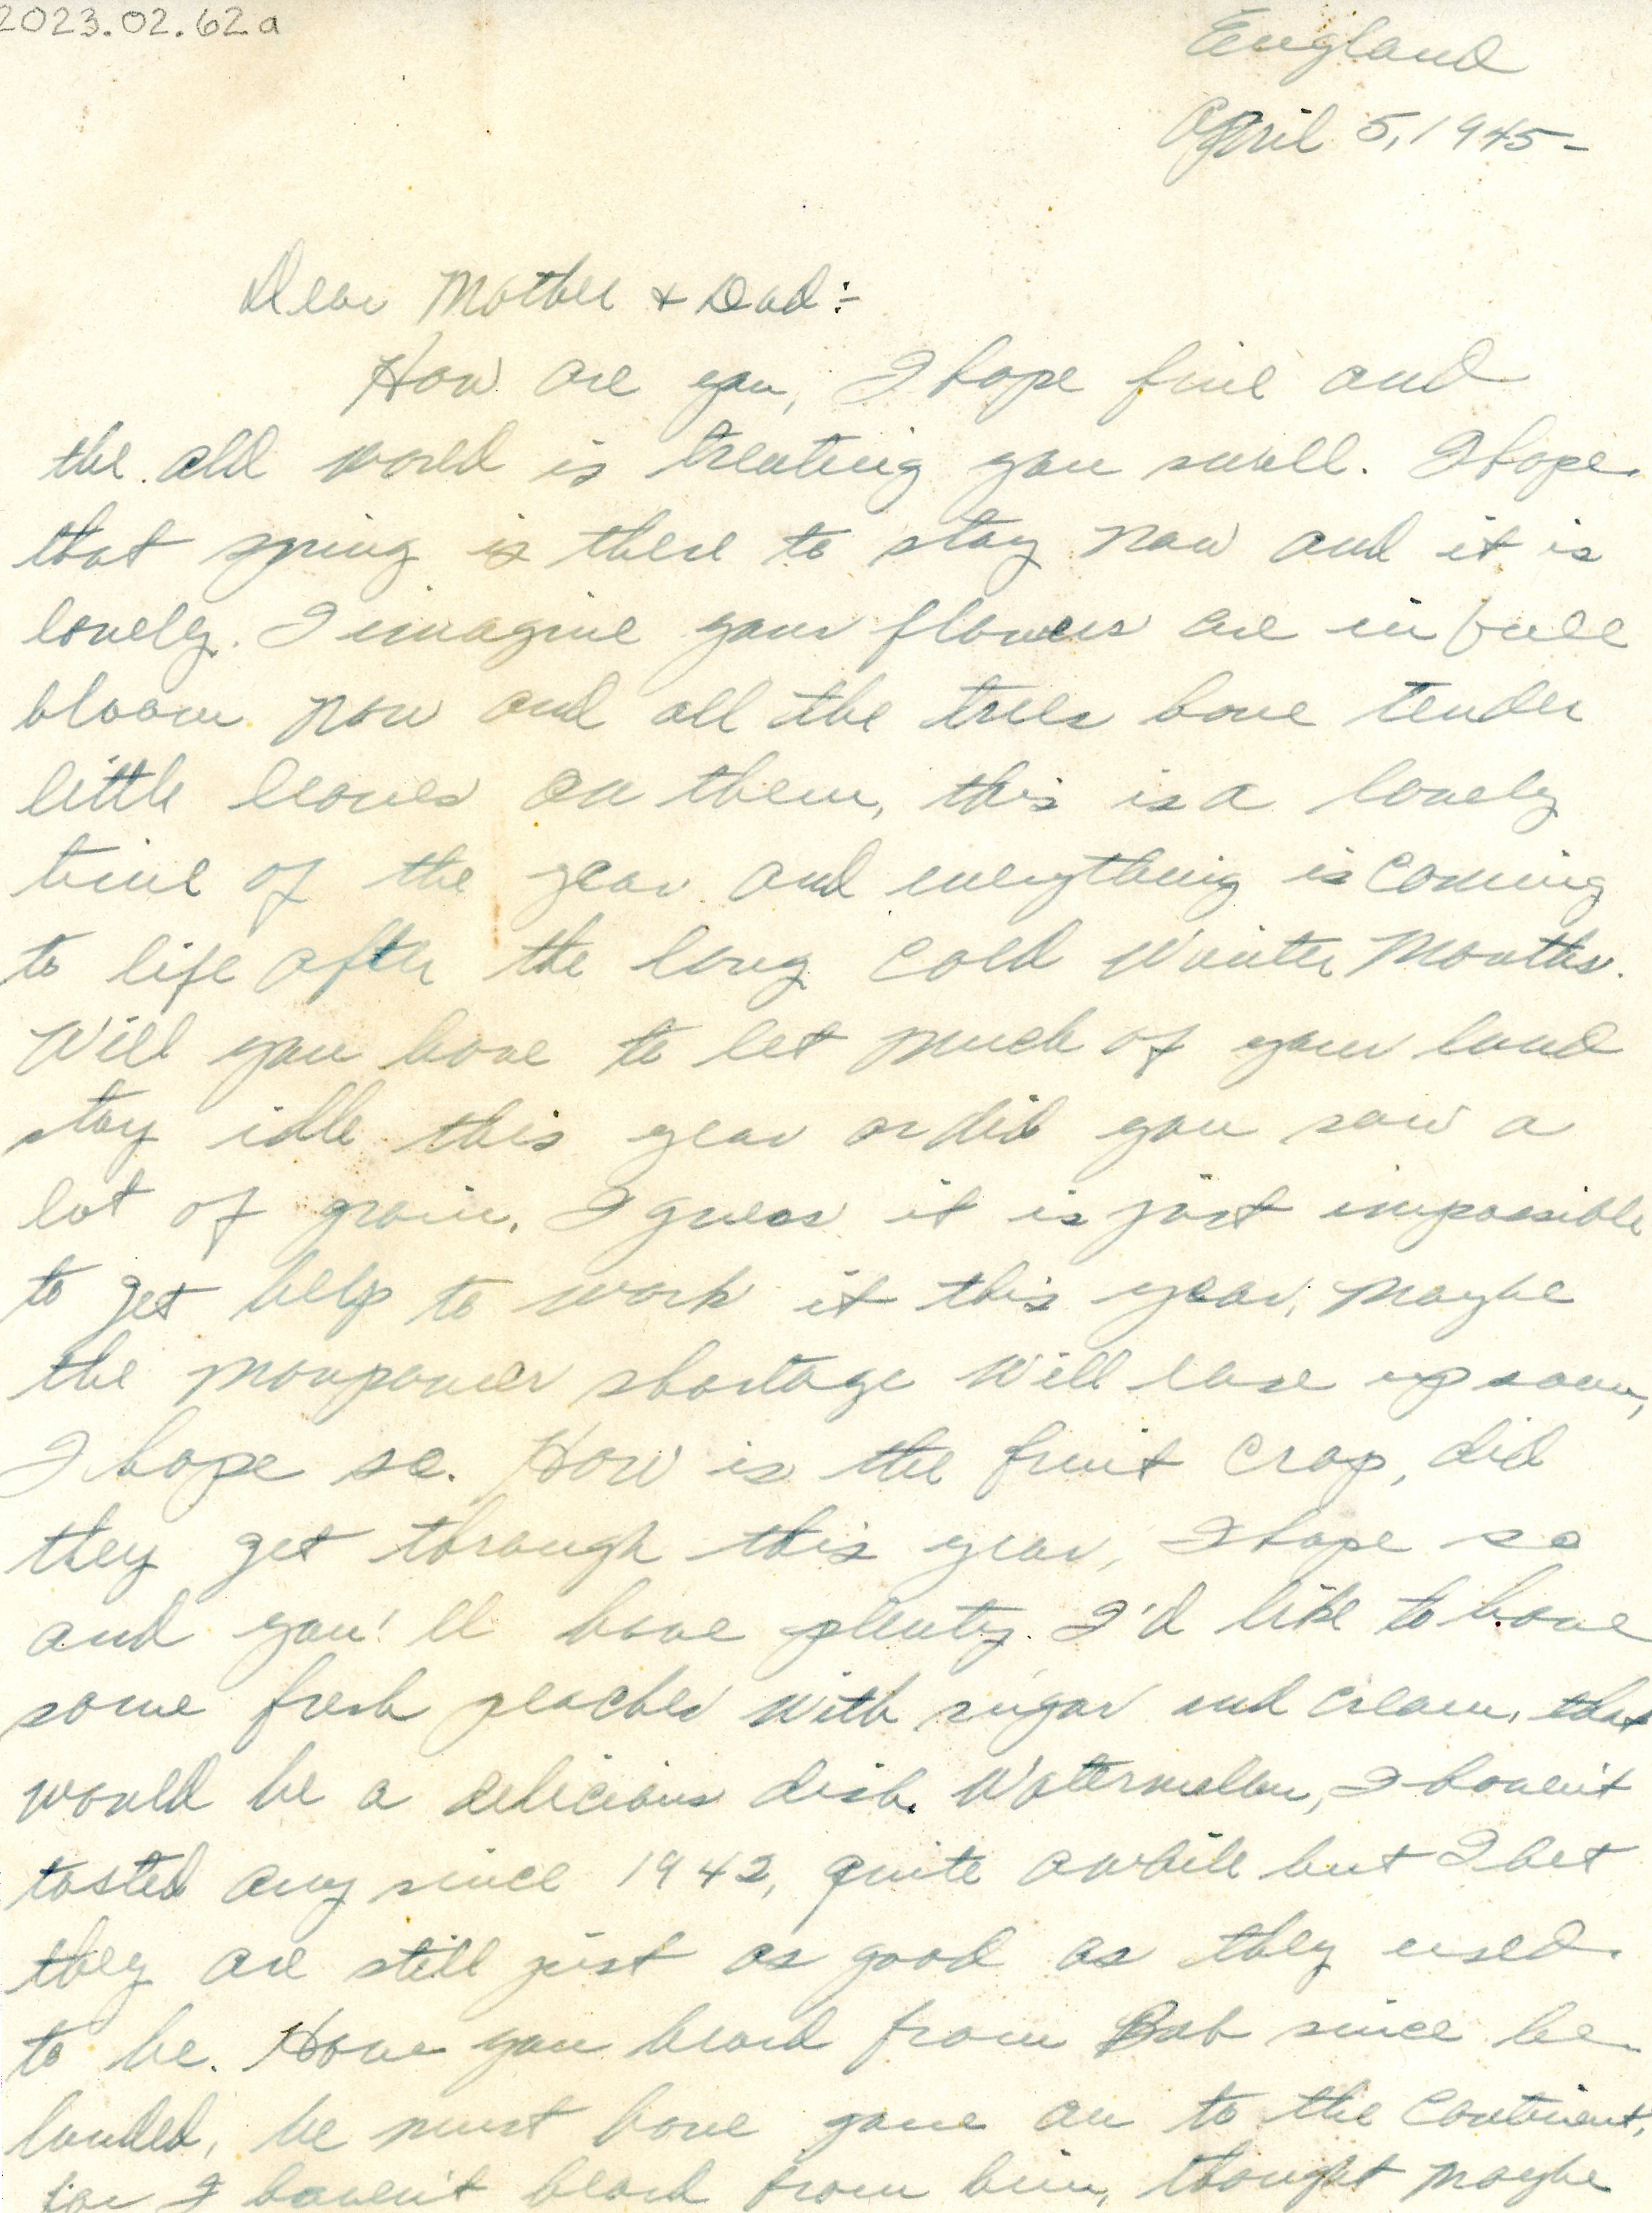 2023.02.62a
England
April 5, 1945-
Dear Mother + Dad:-
How are you, I hope fine and
the old world is treating you swell. I hope
that spring is there to stay now and it is
lovely. I imagine your flowers are in full
bloom now and all the trees have tender
little leaves on them, this is a lovely
time of the year and everything is coming
to life after the long cold Winter Months.
Will you have to let much of your land
stay idle this year or did you sow a
lot of grain. I guess it is just impossible
to get help to work it this year, maybe
the manpower shortage will ease up soon,
I hope so. How is the fruit crop, did
they get through this year, I hope so
and you'll have plenty. I'd like to have
some fresh peaches with sugar and cream, that
would be a delicious dish. Watermelon, I haven't
tasted any since 1942, quite awhile but I bet
they are still just as good as they used
to be. Have you heard from Bob since he
landed, he must have gone on to the Continent,
for I haven't heard from him, thought maybe